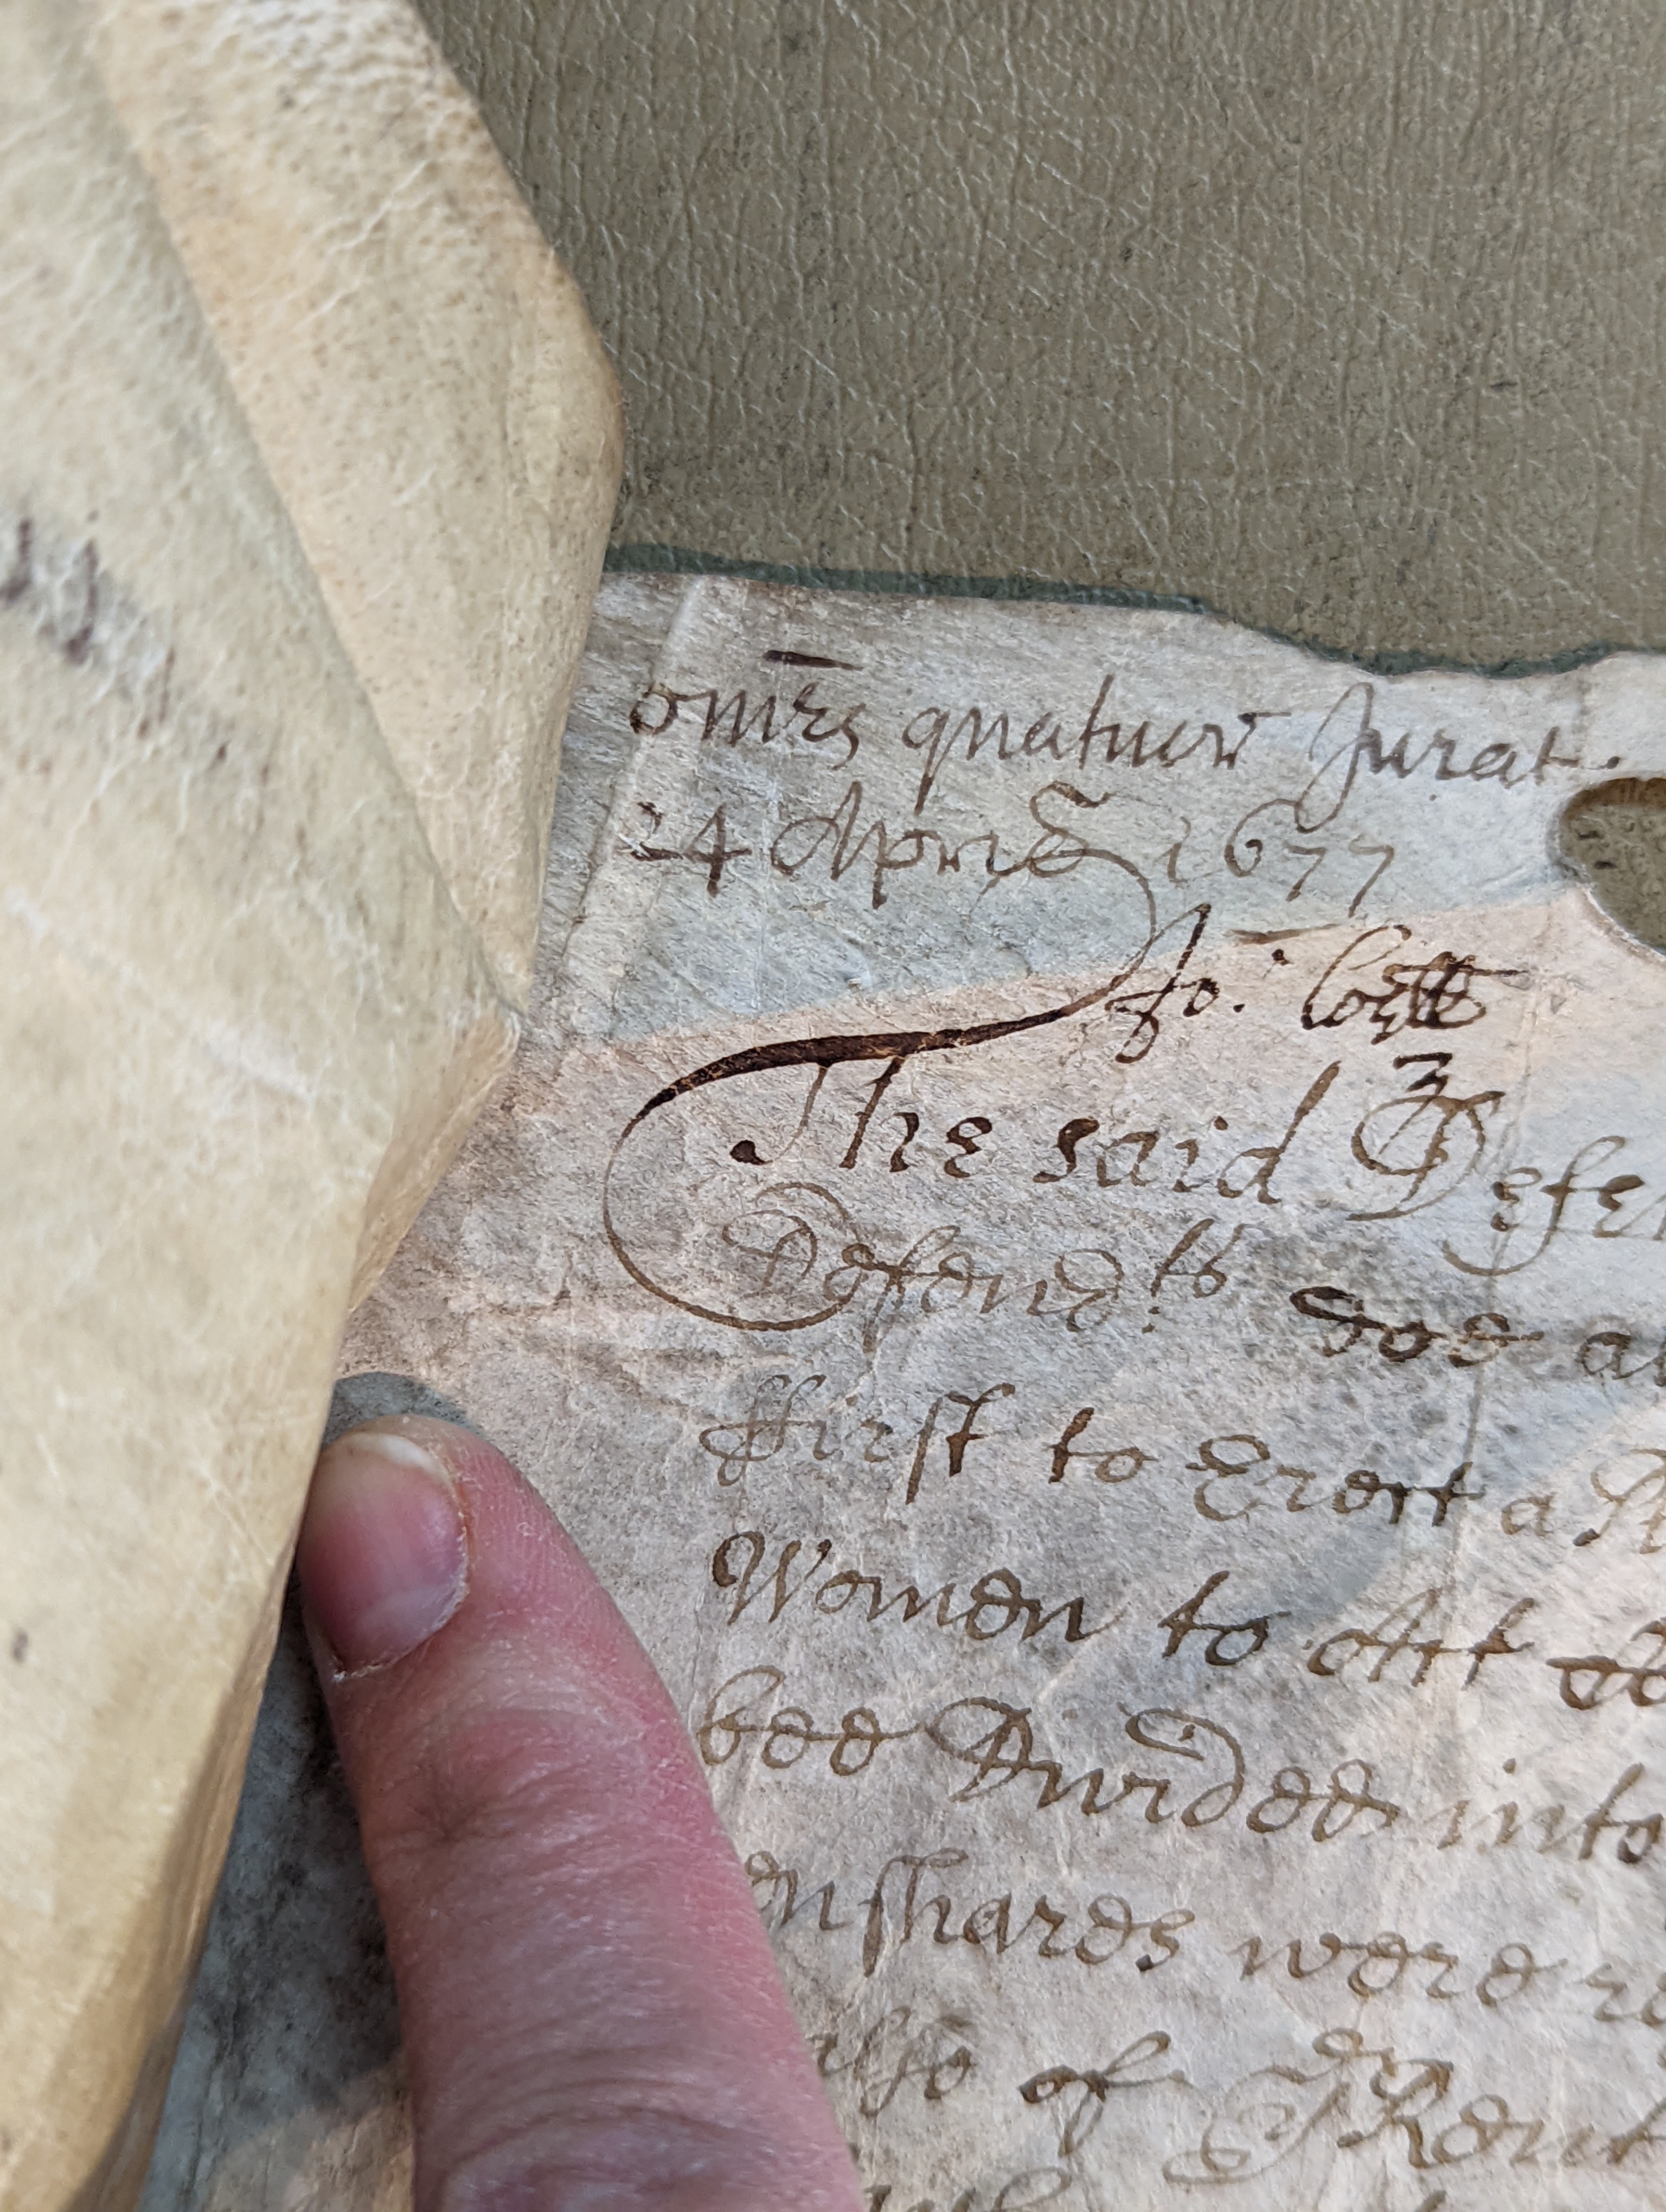 om̄es quatuor Jurat.
24 Aprił 1677
Jo: Coell
The said Defen
Defend:ts doe al
ffirst to Erect a
Women to Act
bee Divided into
shares were re
also of